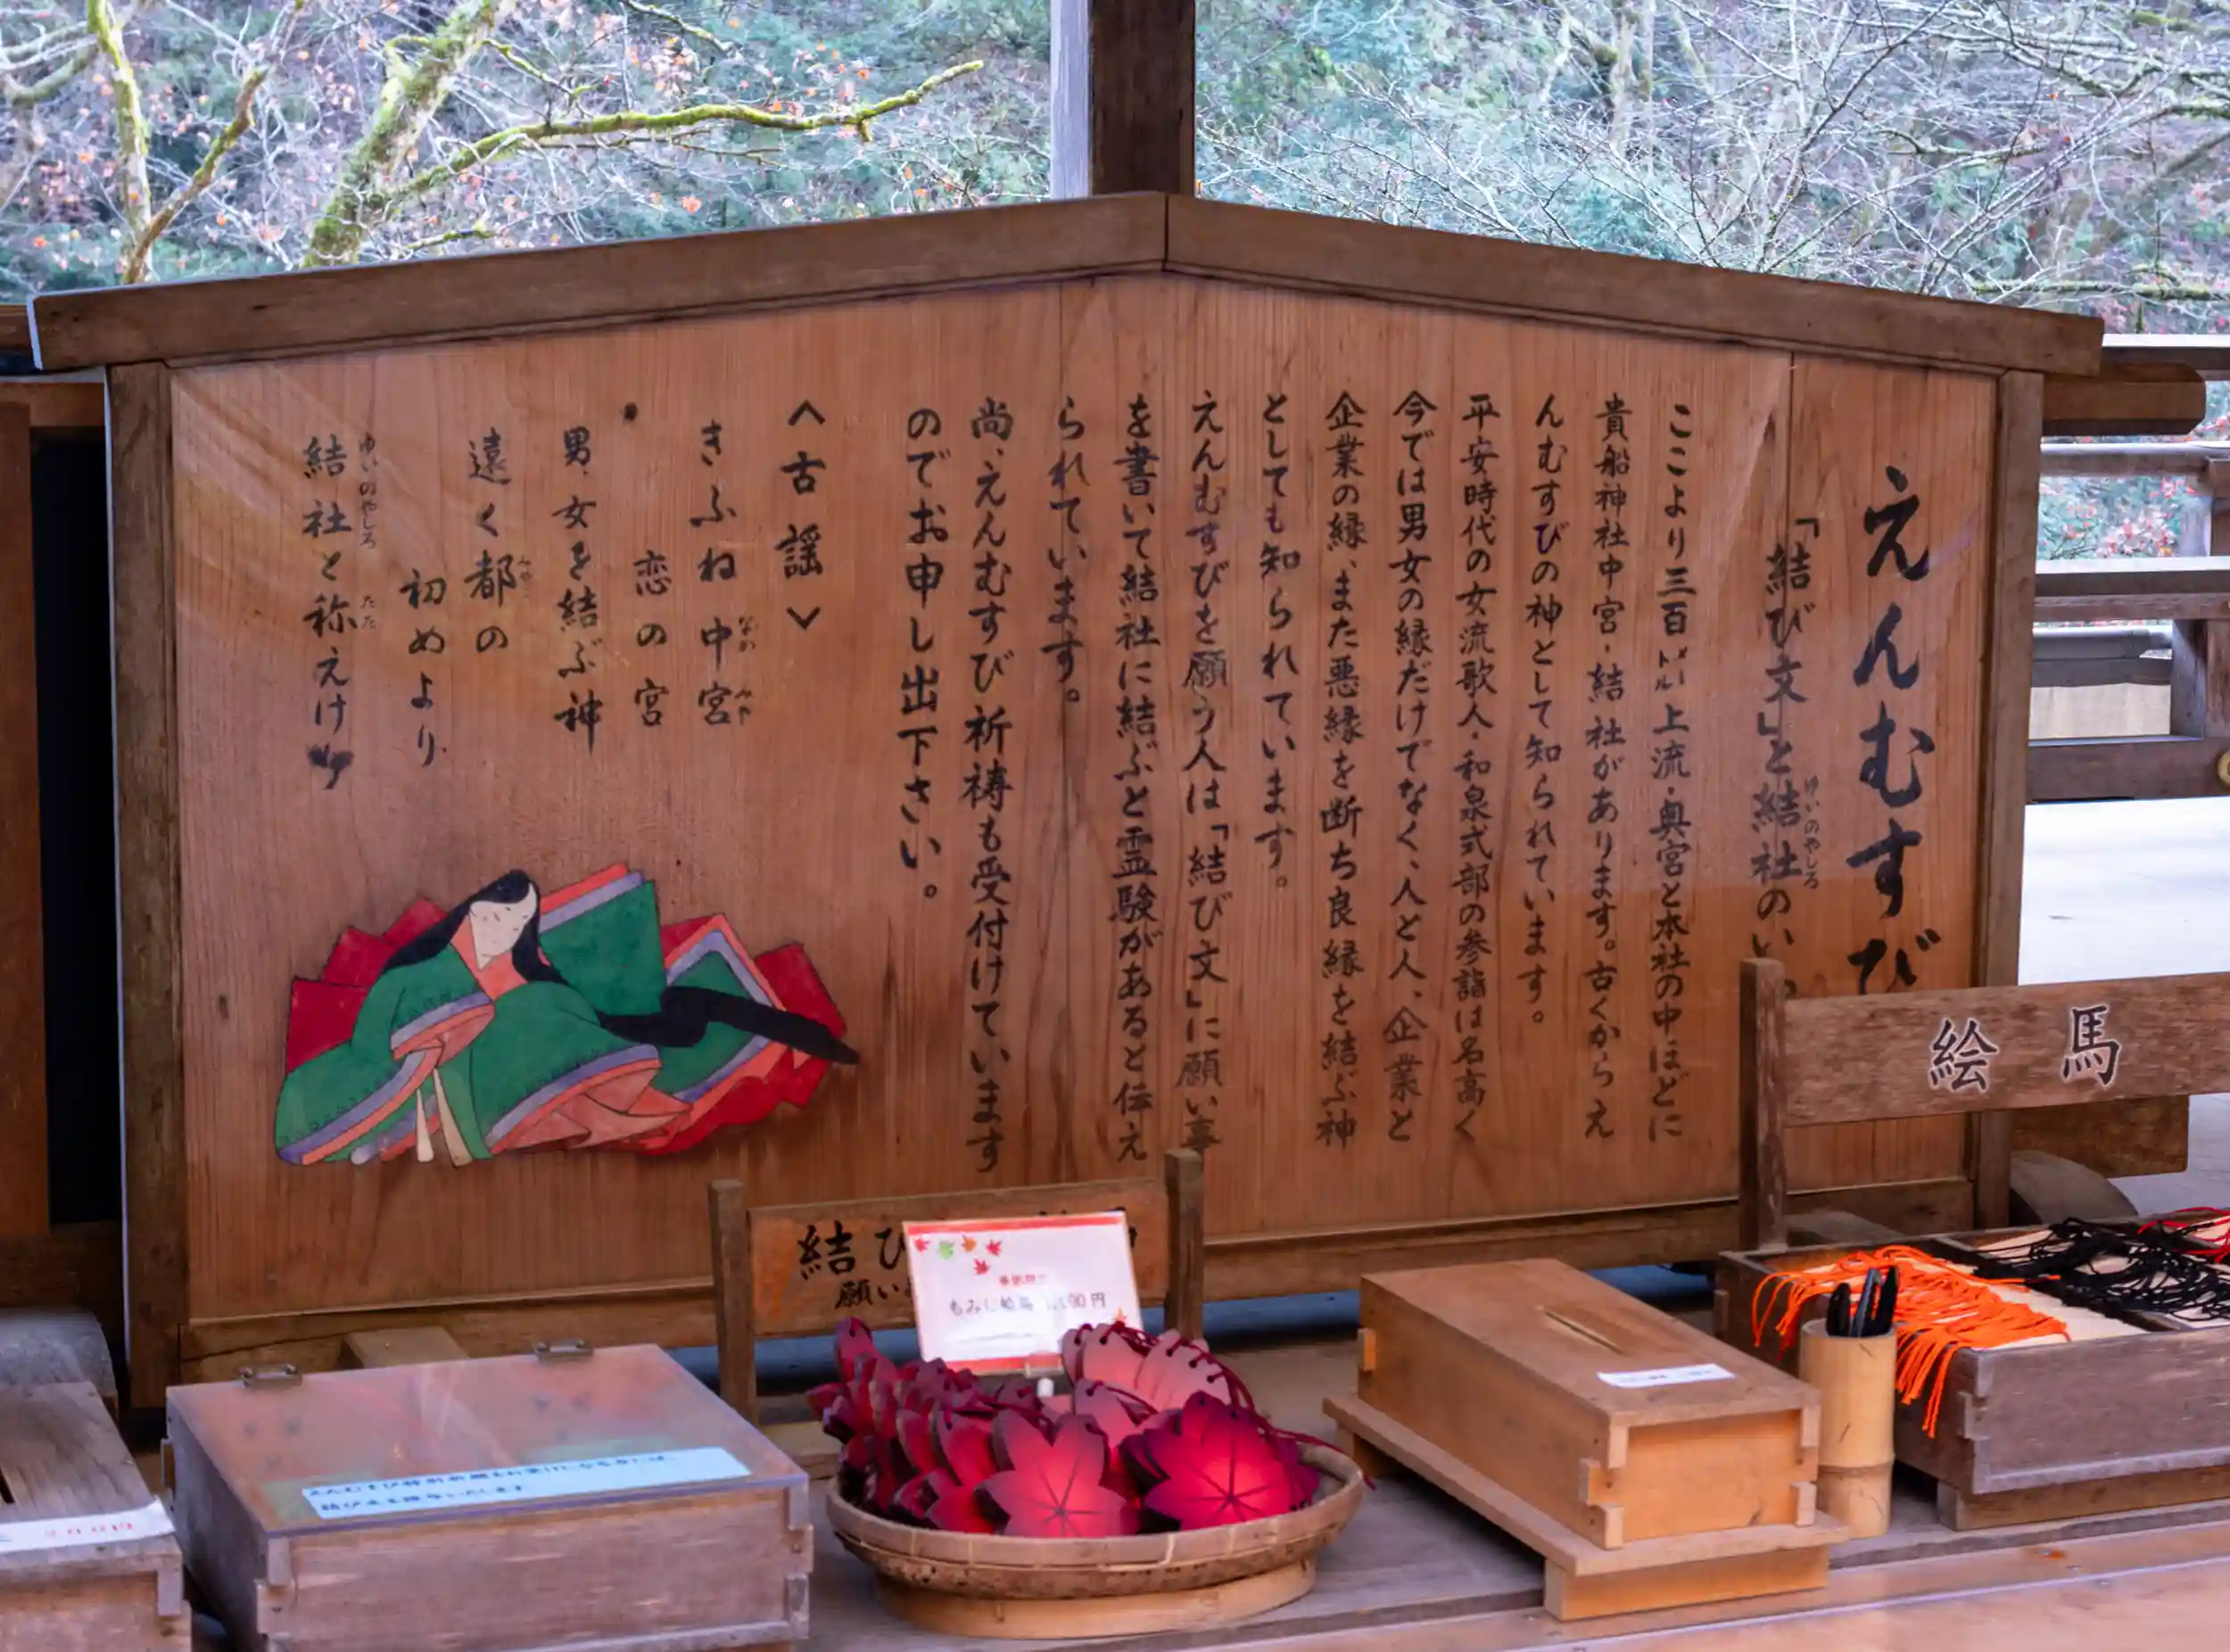 えんむすび
「結び文」と結社のい
ゆいのやしろ
ここより三百メートル上流・奥宮と本社の中ほどに
貴船神社中宮・結社があります。古くからえ
んむすびの神として知られています。
平安時代の女流歌人・和泉式部の参詣は名高く
今では男女の縁だけでなく、人と人、企業と
企業の縁、また悪縁を断ち良縁を結ぶ神
としても知られています。
えんむすびを願う人は「結び文」に願い事
を書いて結社に結ぶと霊験があると伝え
られています。
尚、えんむすび祈祷も受付けています
のでお申し出下さい。
<古謡>
きふね中宮
なかみや
恋の宮
男女を結ぶ神
遠く都の
みやこ
初めより
結社と称えけ
ゆいのやしろ たた
絵馬
結び
願い
もみじ絵馬 円